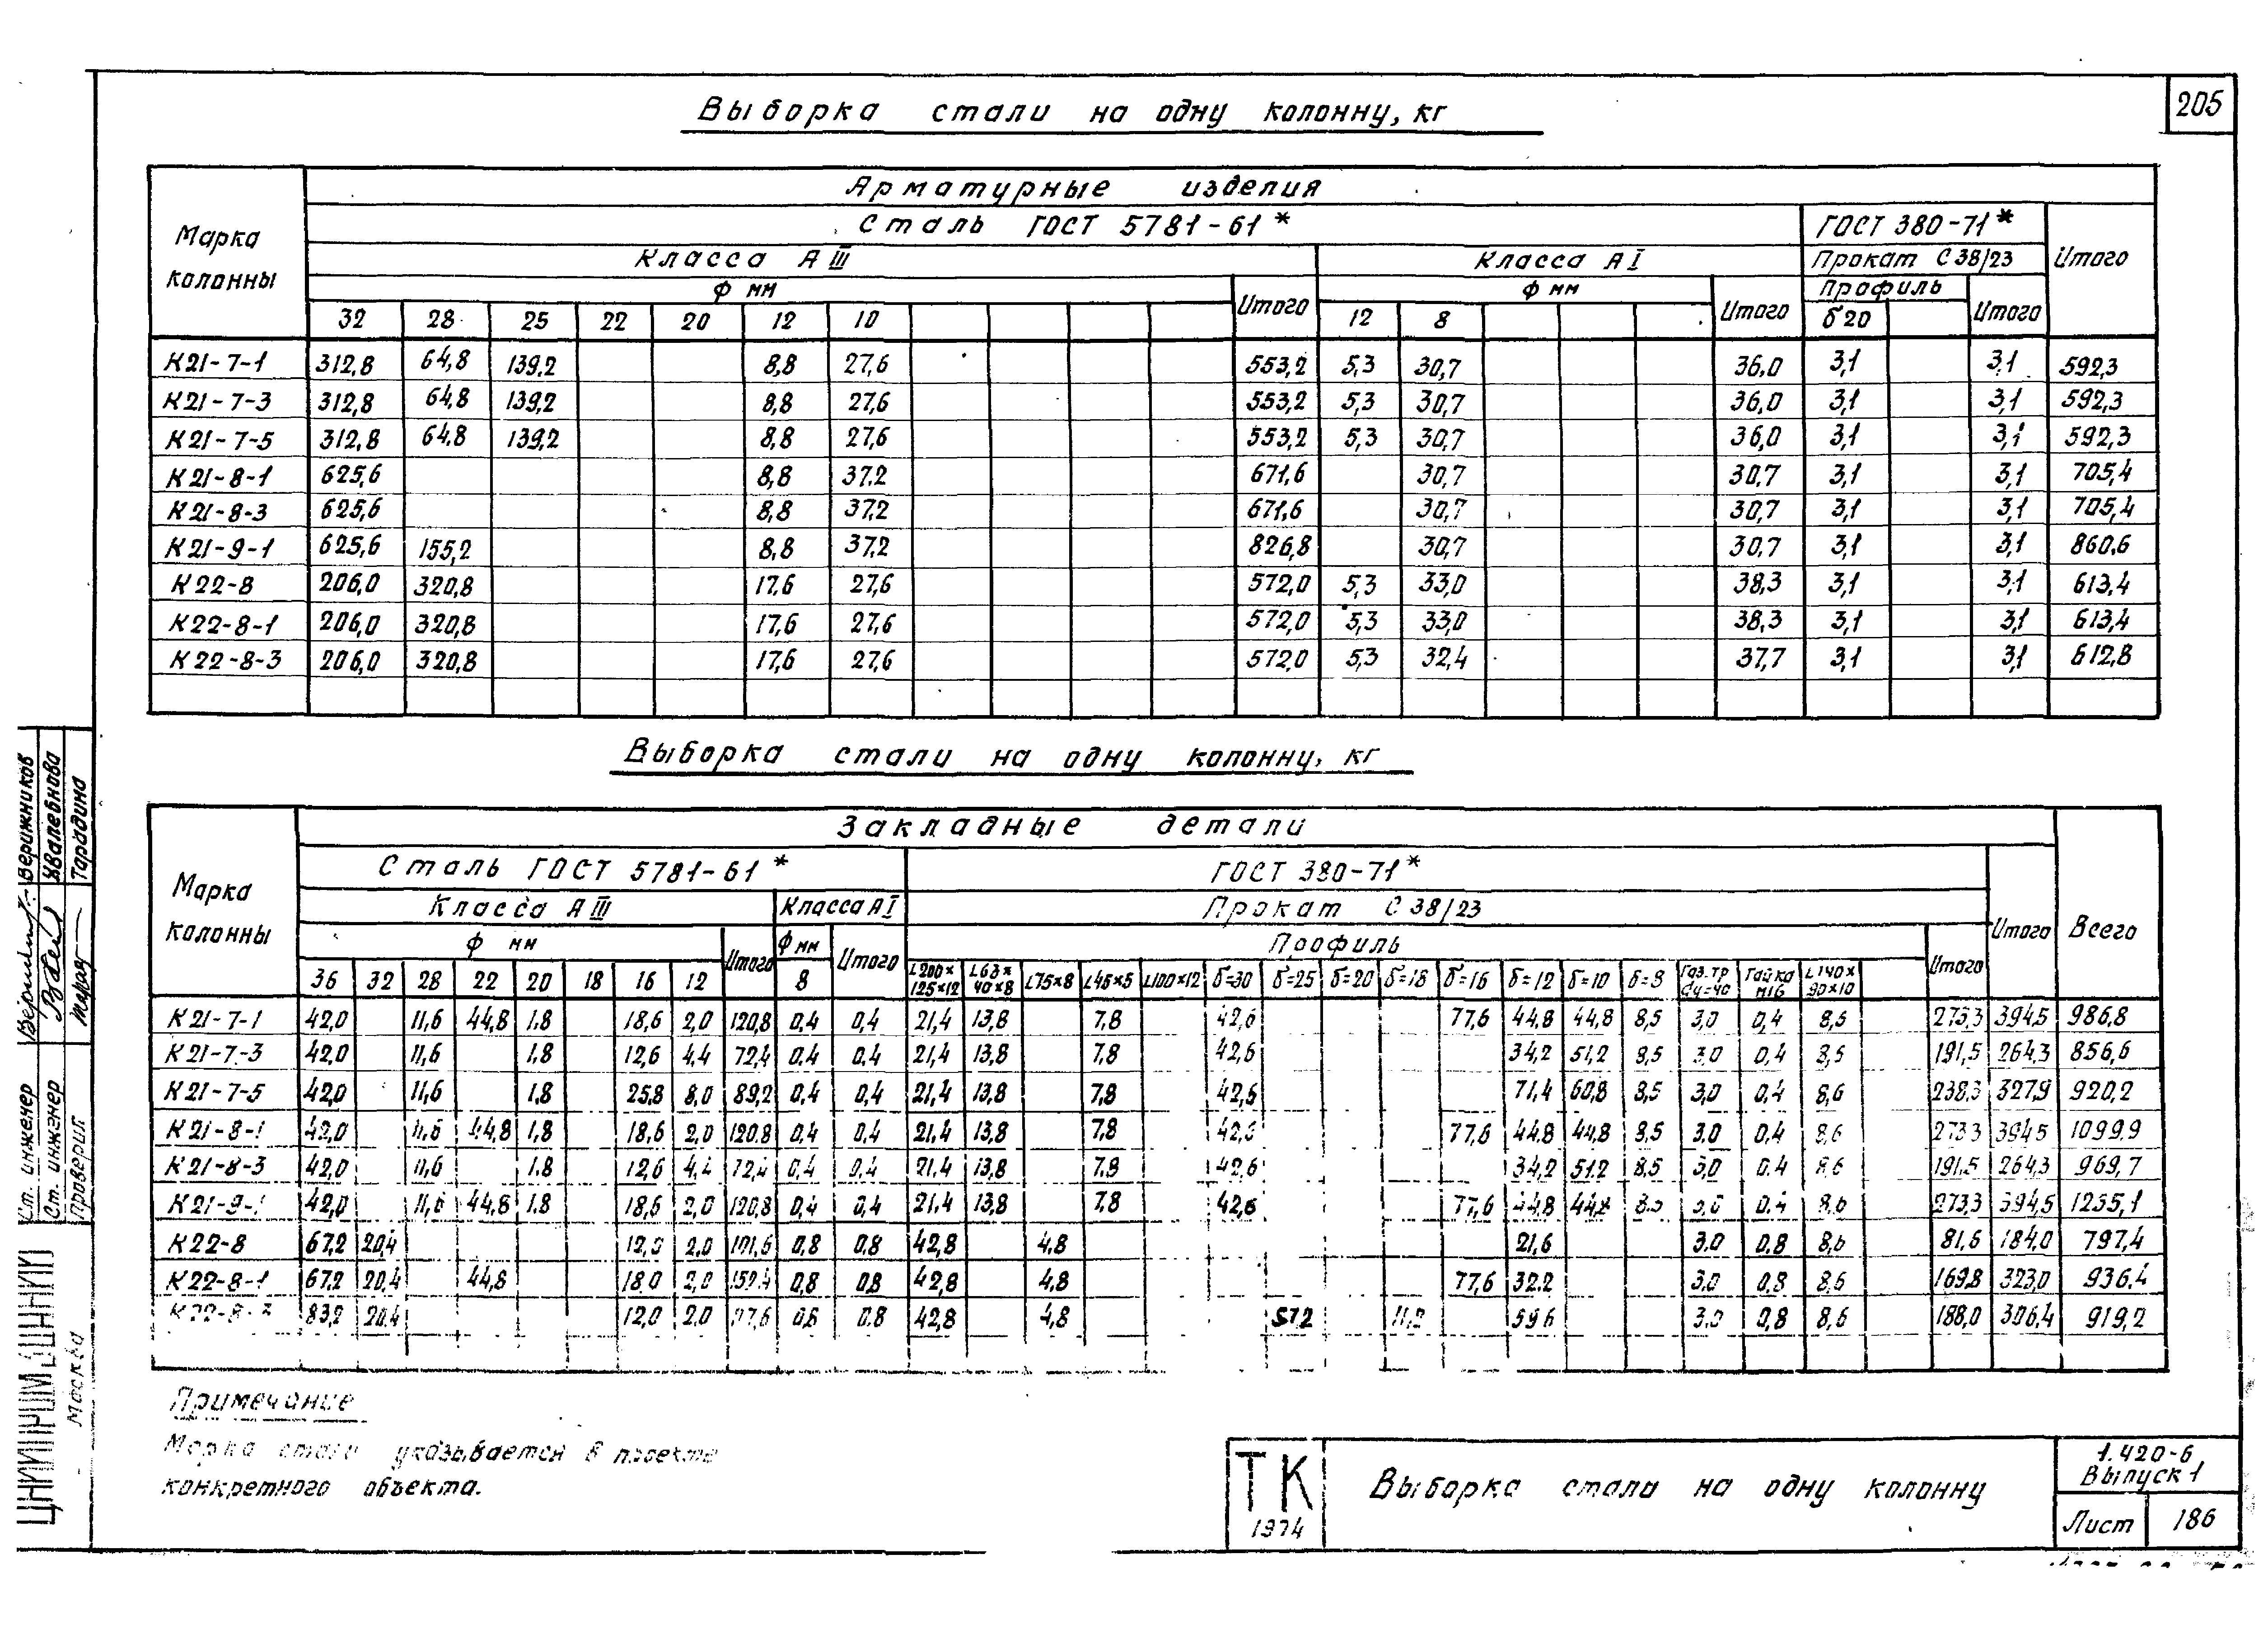 205
Выборка стали на одну колонну, кг
Марка колонны
Арматурные изделия
Сталь ГОСТ 5781-61* ГОСТ 380-71* Итого
Класса А III Класса А I Прокат С 38/23
Ф мм Итого Ф мм Итого Профиль Итого
32 28 25 22 20 12 10 12 8 δ20
К21-7-1 312,8 64,8 139,2 8,8 27,6 553,2 5,3 30,7 36,0 3,1 3,1 592,3
К21-7-3 312,8 64,8 139,2 8,8 27,6 553,2 5,3 30,7 36,0 3,1 3,1 592,3
К21-7-5 312,8 64,8 139,2 8,8 27,6 553,2 5,3 30,7 36,0 3,1 3,1 592,3
К21-8-1 625,6 8,8 37,2 671,6 30,7 30,7 3,1 3,1 705,4
К21-8-3 625,6 8,8 37,2 671,6 30,7 30,7 3,1 3,1 705,4
К21-9-1 625,6 155,2 8,8 37,2 826,8 30,7 30,7 3,1 3,1 860,6
К22-8 206,0 320,8 17,6 27,6 572,0 5,3 33,0 38,3 3,1 3,1 613,4
К22-8-1 206,0 320,8 17,6 27,6 572,0 5,3 33,0 38,3 3,1 3,1 613,4
К22-8-3 206,0 320,8 17,6 27,6 572,0 5,3 32,4 37,7 3,1 3,1 612,8
Выборка стали на одну колонну, кг
Марка колонны
Закладные детали Всего
Сталь ГОСТ 5781-61* ГОСТ 380-71* Итого
Класса А III Класса А I Прокат С 38/23
Ф мм Итого Ф мм Итого Профиль Итого
36 32 28 22 20 18 16 12 8 L200×125×12 L63×40×8 L75×8 L45×5 L100×12 δ=30 δ=25 δ=20 δ=18 δ=16 δ=12 δ=10 δ=8 Газ.тр dу=40 Гайка М16 L140×90×10
К21-7-1 42,0 11,6 44,8 1.8 18,6 2,0 120,8 0,4 0,4 21,4 13,8 7,8 42,6 77,6 44,8 44,8 8,5 3,0 0,4 8,6 273,3 394,5 986,8
К21-7-3 42,0 11,6 1.8 12,6 4,4 72,4 0,4 0,4 21,4 13,8 7,8 42,6 34,2 51,2 8,5 3,0 0,4 8,6 191,5 264,3 856,6
К21-7-5 42,0 11,6 1.8 25,8 8,0 89,2 0,4 0,4 21,4 13,8 7,8 42,6 71,4 60,8 8,5 3,0 0,4 8,6 238,3 327,9 920,2
К21-8-1 42,0 11,6 44,8 1,8 18,6 2,0 120,8 0,4 0,4 21,4 13,8 7,8 42,6 77,6 44,8 44,8 8,5 3,0 0,4 8,6 273,3 394,5 1099,9
К21-8-3 42,0 11,6 1.8 12,6 4,4 72,4 0,4 0,4 21,4 13,8 7,8 42,6 34,2 51,2 8,5 3,0 0,4 8,6 191,5 264,3 969,7
К21-9-1 42,0 11,6 44,8 1.8 18,6 2,0 120,8 0,4 0,4 21,4 13,8 7,8 42,6 77,6 44,8 44,8 8,5 3,0 0,4 8,6 273,3 394,5 1255,1
К22-8 67,2 20,4 12,0 2,0 101,6 0,8 0,8 42,8 4,8 21,6 3,0 0,8 8,6 81,6 184,0 797,4
К22-8-1 67,2 20,4 44,8 18,0 2,0 152,4 0,8 0,8 42,8 4,8 77,6 32,2 3,0 0,8 8,6 169,8 323,0 936,4
К22-8-3 83,2 20,4 12,0 2,0 117,6 0,8 0,8 42,8 4,8 57,2 11,2 59,6 3,0 0,8 8,6 188,0 306,4 919,2
Примечание
Марка стали указывается в проекте
конкретного объекта.
ТК
1974
Выборка стали на одну колонну
1.420-6
Выпуск 1
Лист 186
Ст. инженер Верижников
Ст. инженер
Проверил Тарадина
ЦНИИПРОМЗДАНИЙ
Москва